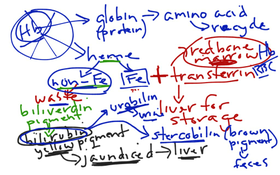 Hb
globin → amino acid
(protein)
recycle
heme
redbone
marrow
Hb
RBC
non-Fe
Fe
+ transferrin
waste
biliverdin
pigment
urobilin
liver for
storage
bilirubin
yellow pigment
stercobilin (brown
pigment)
feces
jaundiced → liver